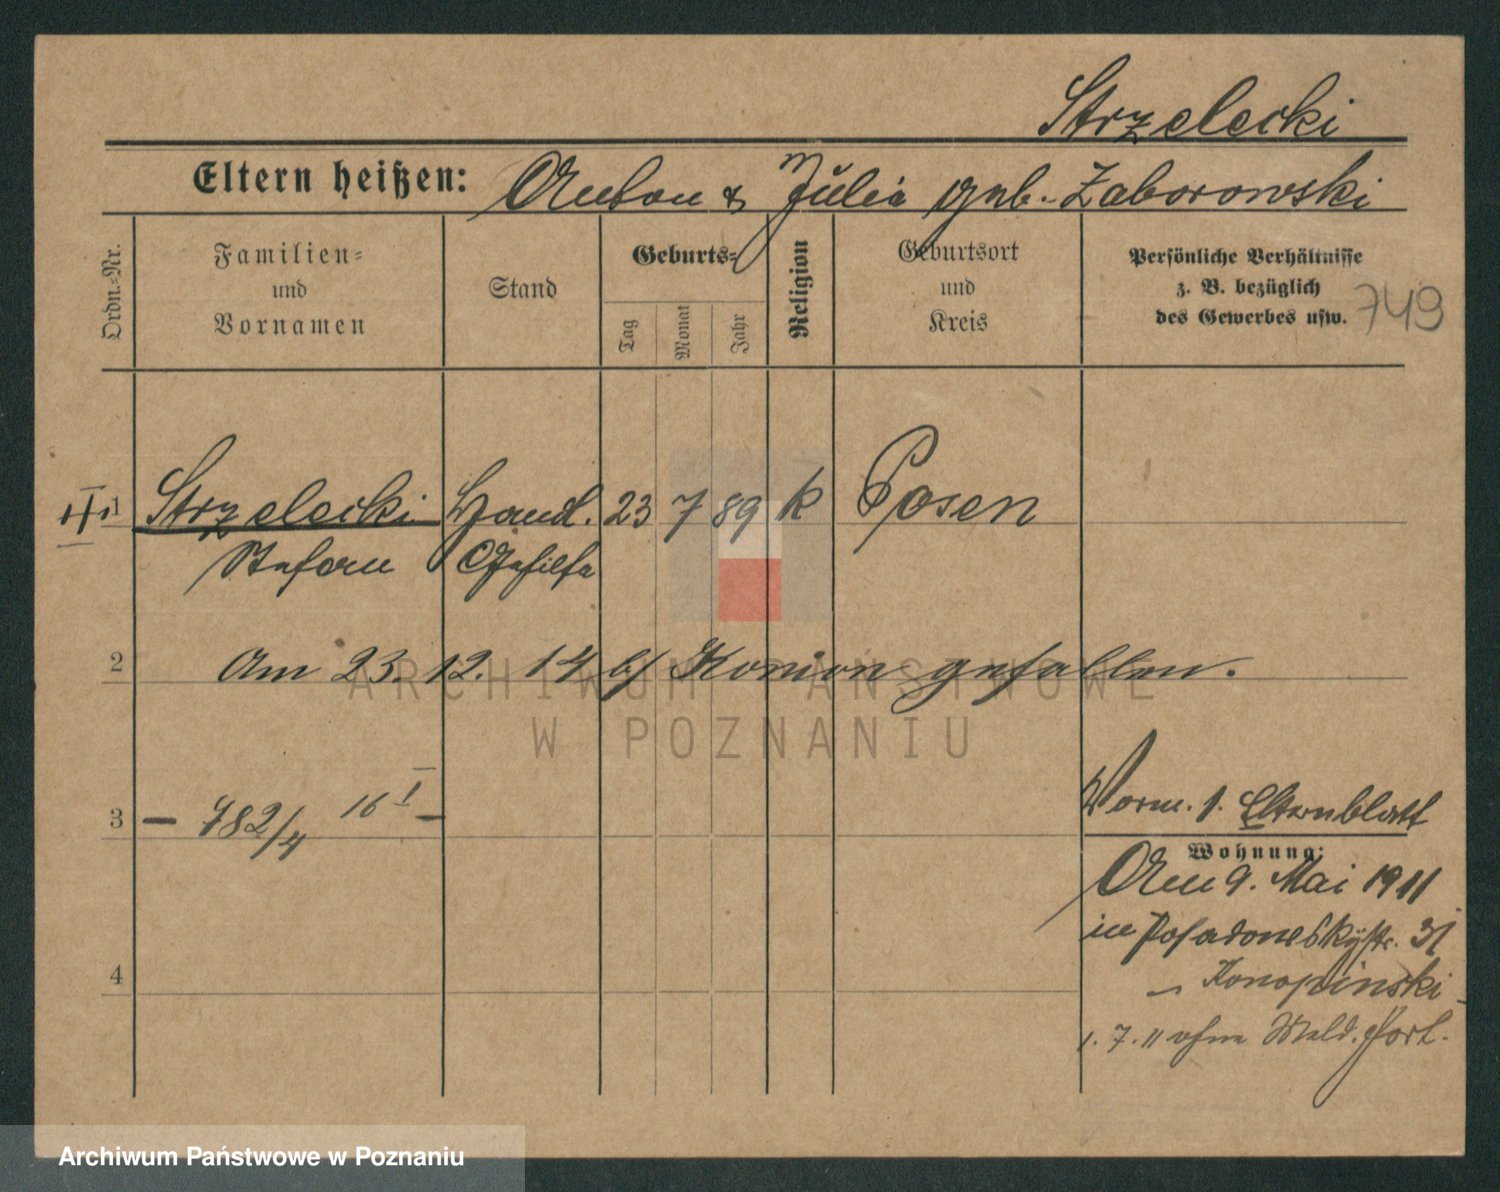 Strzelecki
Eltern heißen: Anton & Julia geb. Zaborowski
Ordn.-Nr.
Familien- und Vornamen
Stand
Geburts-
Tag
Monat
Jahr
Religion
Geburtsort und Kreis
Persönliche Verhältnisse
z. B. bezüglich
des Gewerbes usw.
749
III 1 Strzelecki Handl. 23 7 89 k Posen
Stefan Gehilfe
2 Am 23. 12. 14 b/ gefallen.
3 — 782/4 16 I —
Vorm. s. Elternblatt
Wohnung:
Am 9. Mai 1911
in Posadowskystr. 31
Konopinski
4
1. 7. 11 ohne Meld. fort.
ARCHIWUM PAŃSTWOWE
W POZNANIU
Archiwum Państwowe w Poznaniu